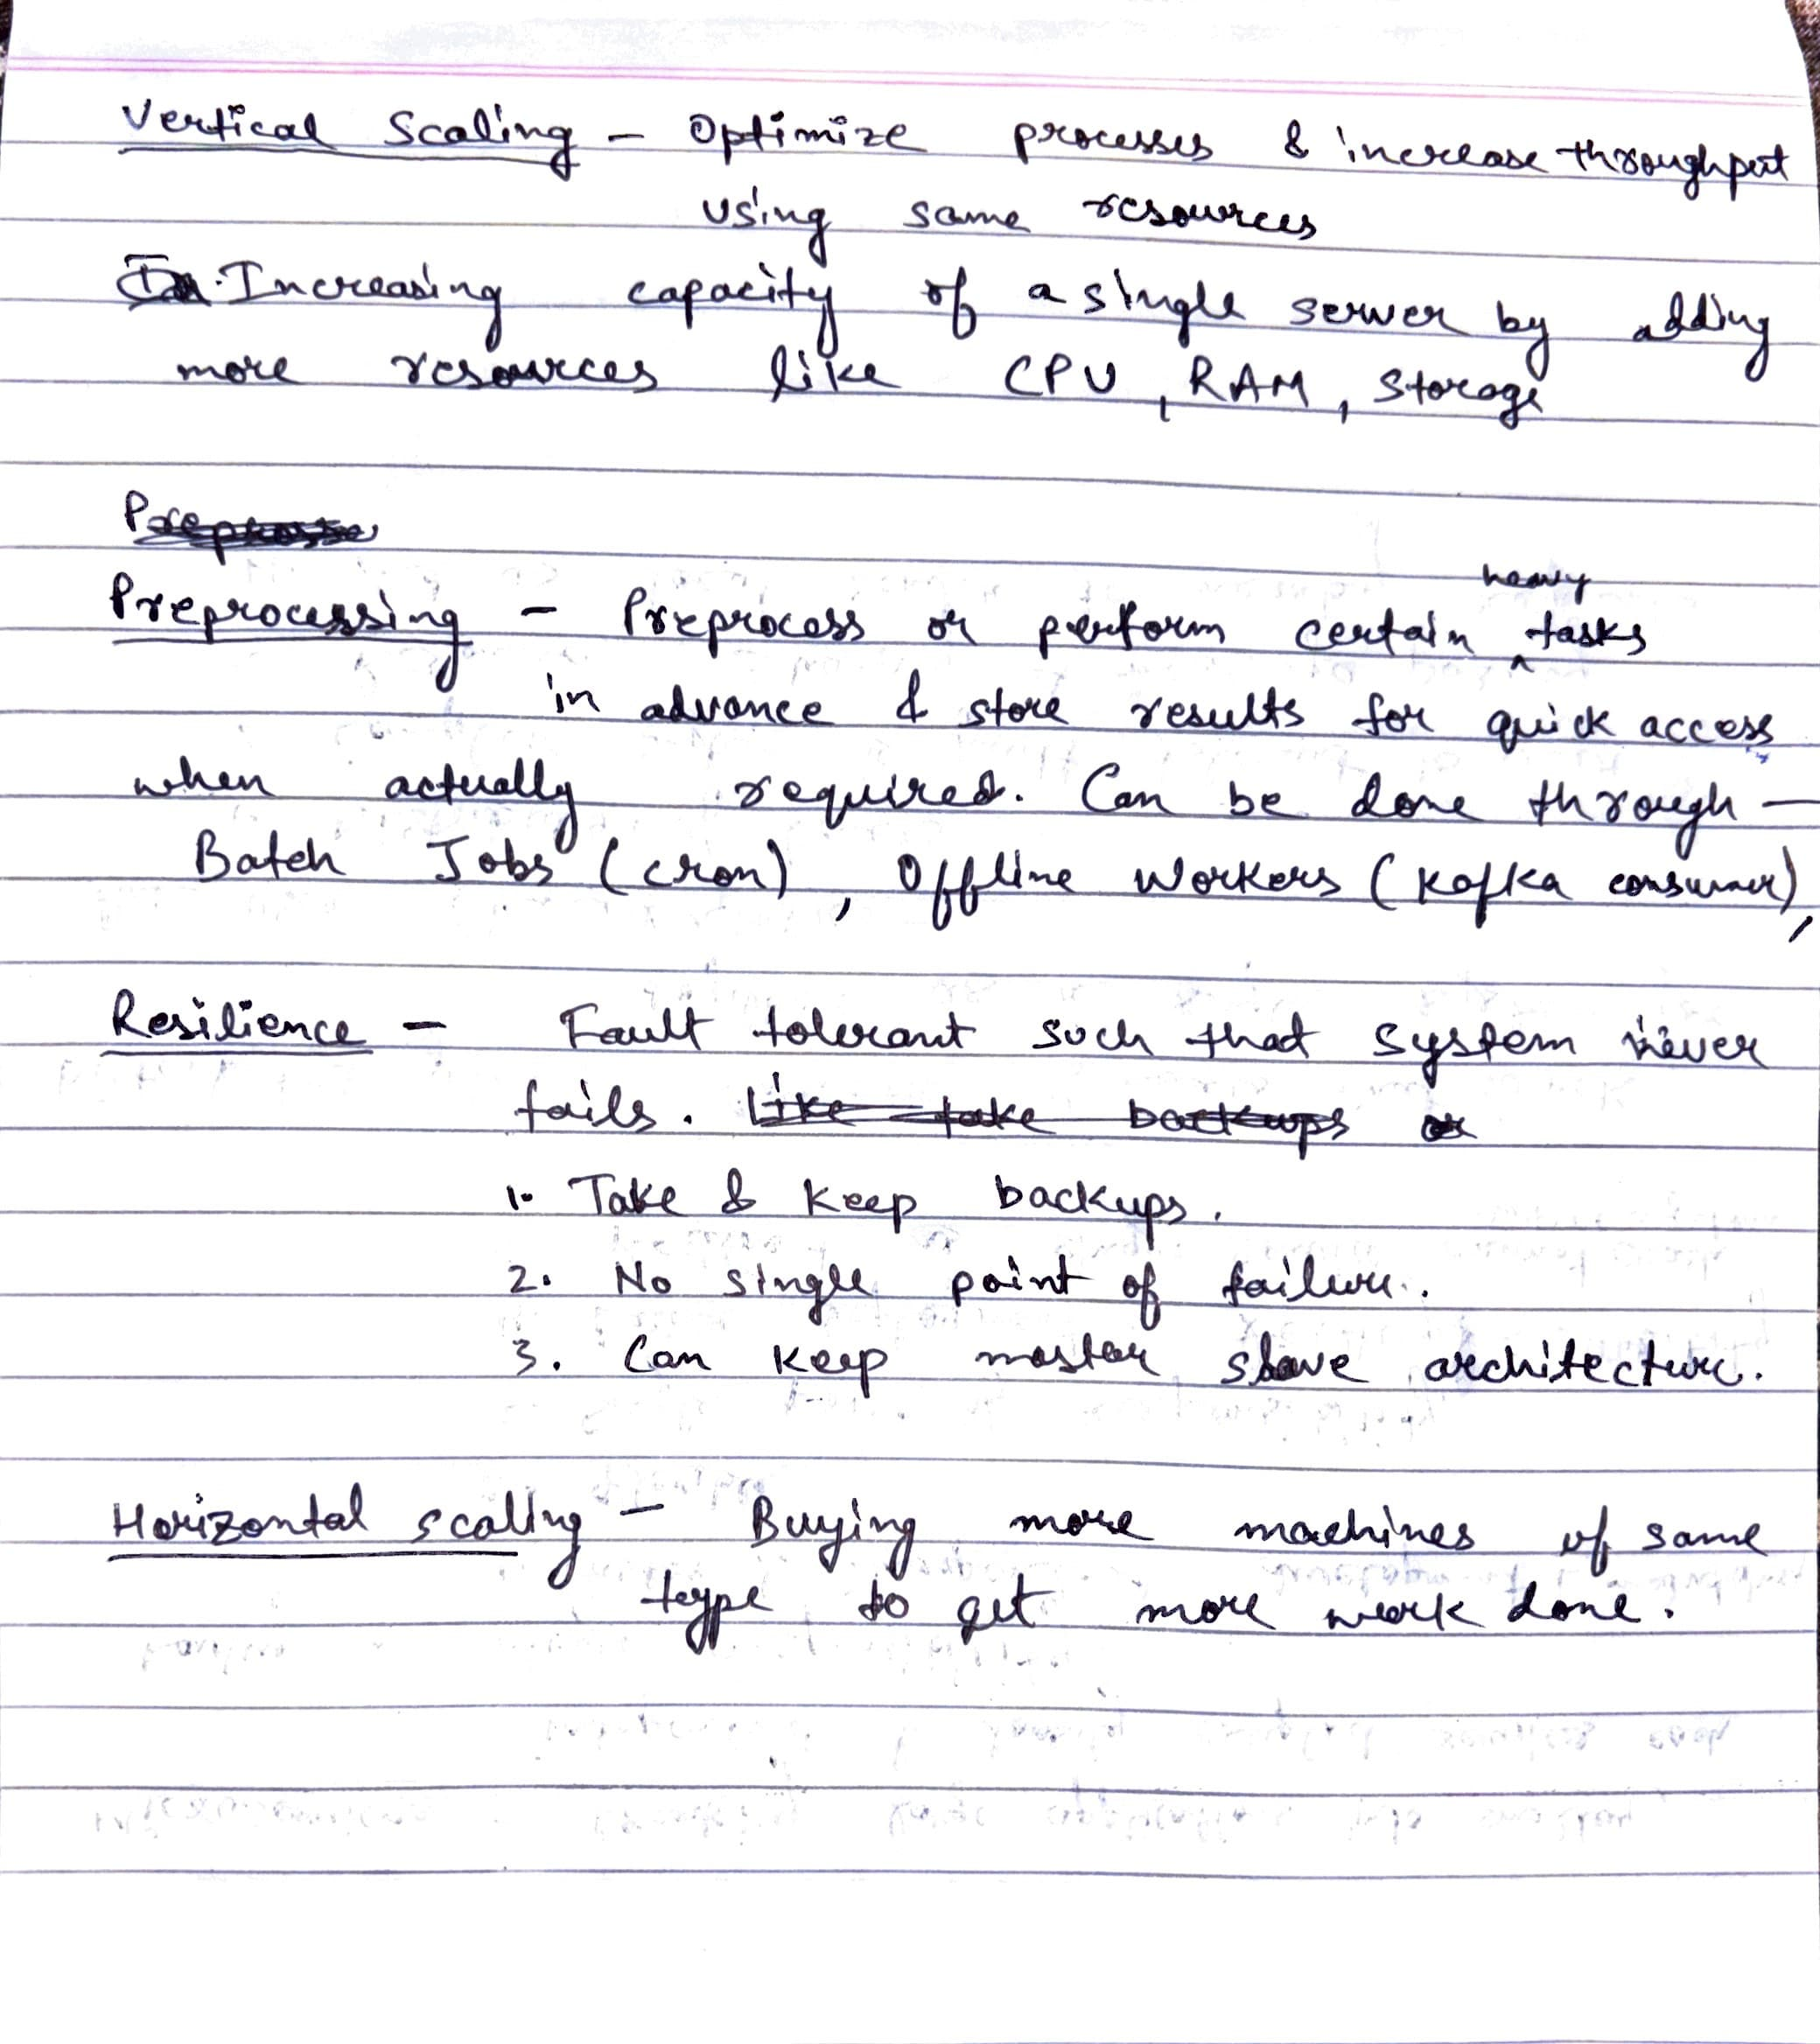 Vertical Scaling - Optimize processes & increase throughput
using same resources
Increasing capacity of a single server by adding
more resources like CPU, RAM, Storage
Preprocessing - Preprocess or perform certain heavy tasks
in advance & store results for quick access
when actually required. Can be done through -
Batch Jobs (cron), Offline Workers (Kafka consumer),
Resilience - Fault tolerant such that system never
fails. Like take backups or
1. Take & Keep backups.
2. No single point of failure.
3. Can Keep master slave architecture.
Horizontal scaling - Buying more machines of same
type to get more work done.